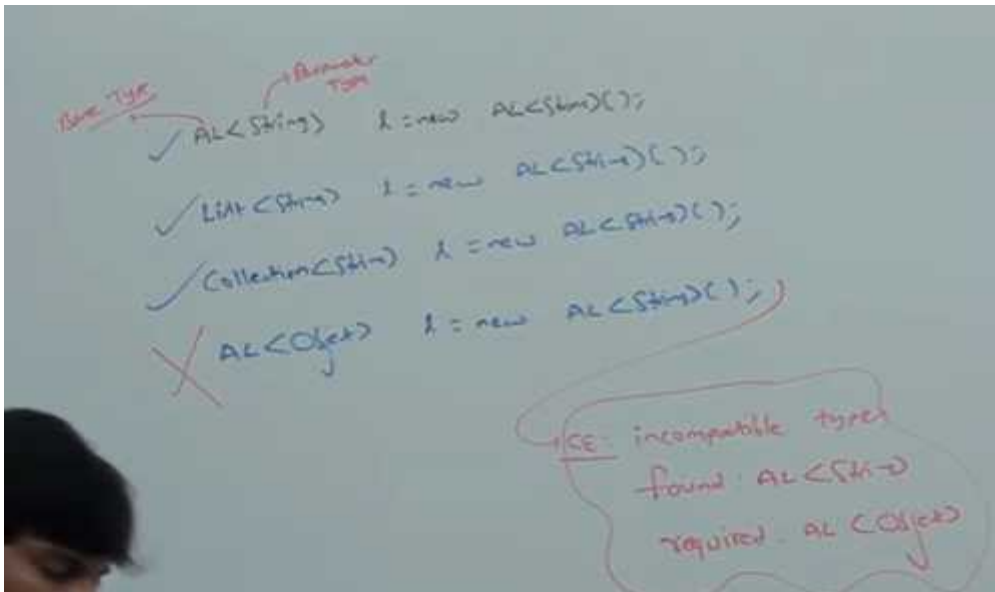 Base Type
Parameter Type
✓ AL<String> l = new AL<String>();
✓ List<String> l = new AL<String>();
✓ Collection<String> l = new AL<String>();
X AL<Object> l = new AL<String>();
CE: incompatible types
found: AL<String>
required: AL<Object>